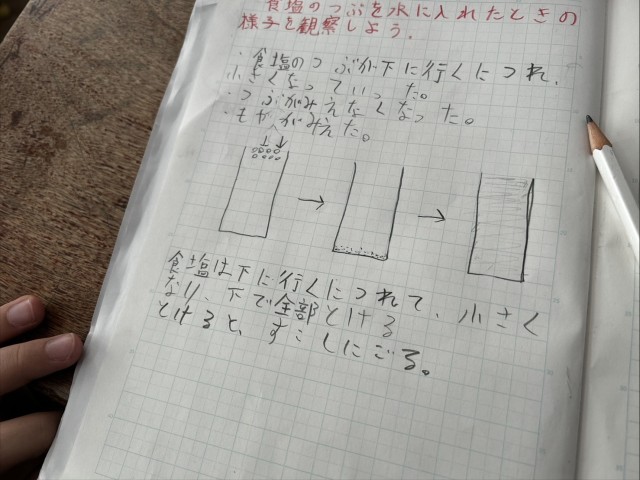 食塩のつぶを水に入れたときの
様子を観察しよう.
・食塩のつぶが下に行くにつれ、
小さくなっていった。
・つぶがみえなくなった。
・もやがみえた。
食塩は下に行くにつれて、小さく
なり、下で全部とける
とけると、すこしにごる。